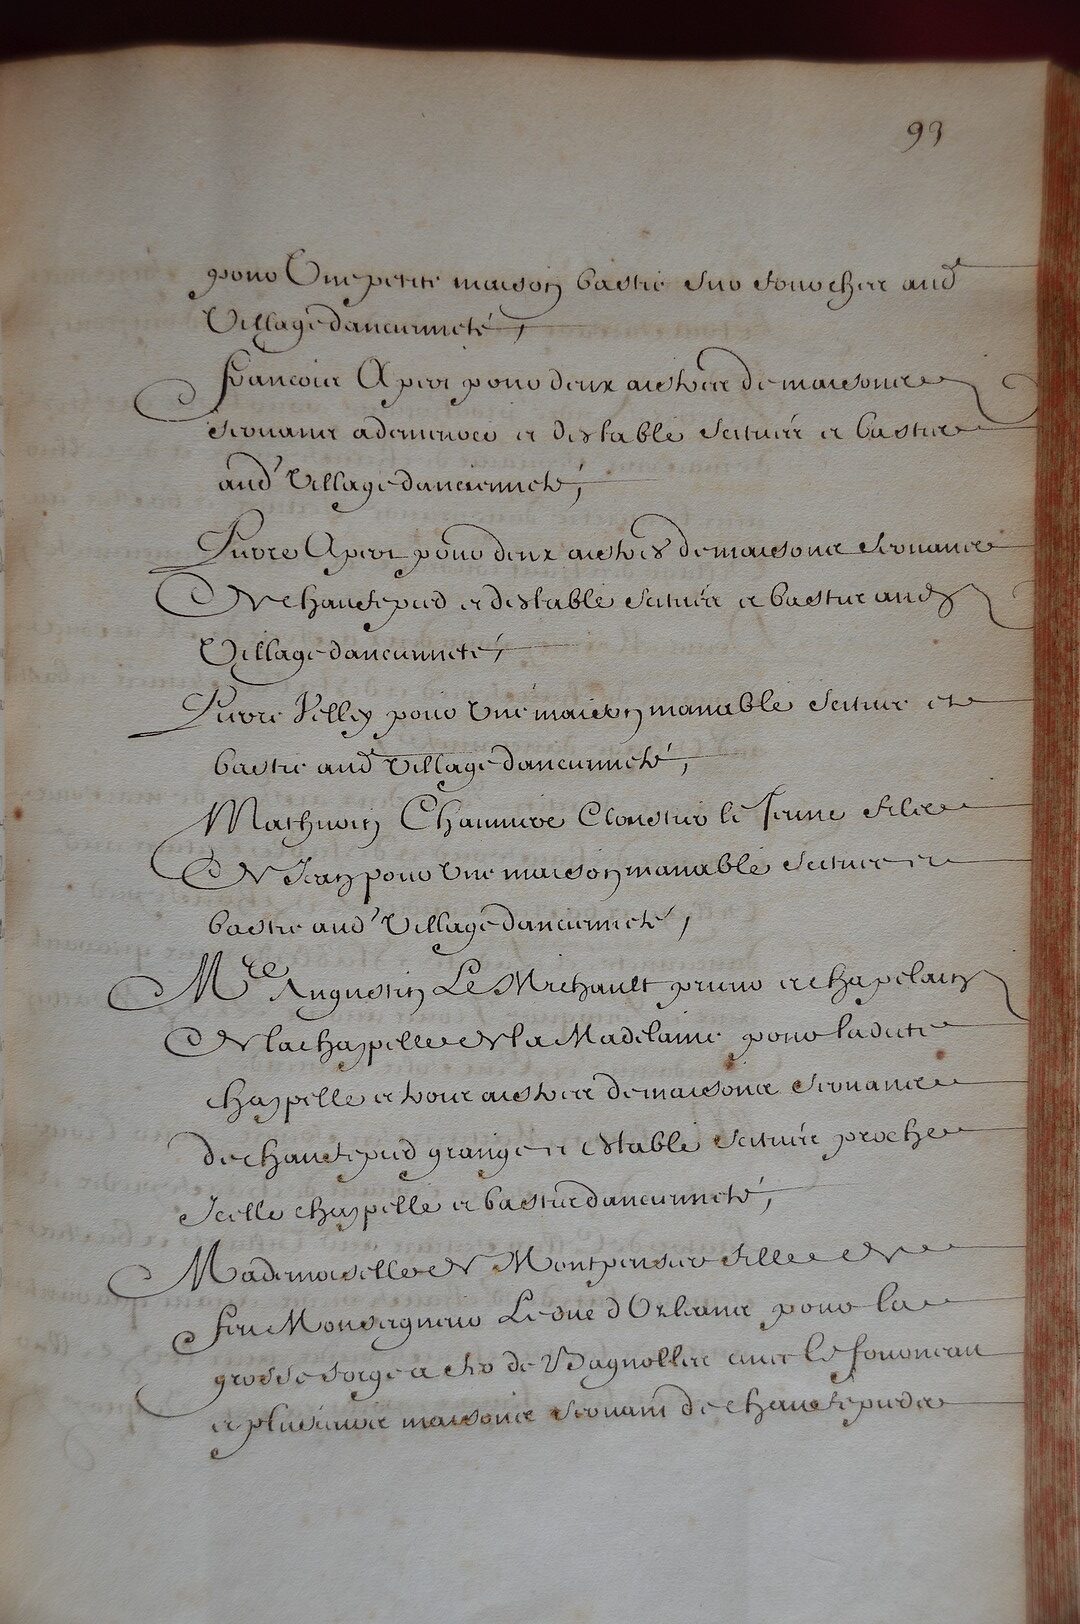 93
pour Une petite maison bastie sur rocher aud
Village dancienneté,
francois Apert pour deux aistres de maisons
servants a demeurer et destable scitués et bastis
aud Village dancienneté,
Pierre Apert pour deux aistres de maisons servans
De chauffepied et destable scitués et bastis aud
Village dancienneté,
Pierre pour Une maison manable scituee et
bastie aud Village dancienneté,
Mathurin Chauniere Cloustier le Jeune filz
De Jean pour Une maison manable scituee et
bastie aud Village dancienneté,
Mre Augustin Le Michault prieur et chapelain
De la chappelle De la Madelaine pour ladicte
chappelle et trois aistres de maisons servans
de chauffepied grange et estable scitués proche
Icelle chappelle et bastis dancienneté,
Mademoiselle De Montpensier fille De
feu Monseigneur Le duc dOrleans pour la
grosse forge a fer de Bagnolles avec le fourneau
et plusieurs maisons servant de chauffepieds